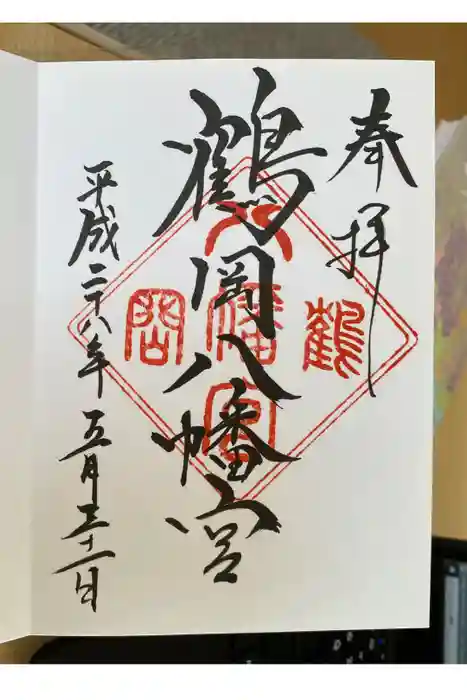 奉拝
鶴岡八幡宮
鶴
八幡宮
岡
平成二十八年五月三十一日